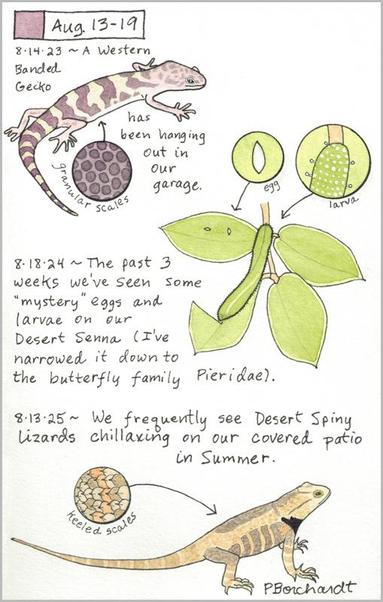 Aug. 13-19
8.14.23 ~ A Western
Banded
Gecko
has
been hanging
out in
our
garage.
granular scales
egg
larva
8.18.24 ~ The past 3
weeks we've seen some
"mystery" eggs and
larvae on our
Desert Senna (I've
narrowed it down to
the butterfly family Pieridae).
8.13.25 ~ We frequently see Desert Spiny
Lizards chillaxing on our covered patio
in Summer.
keeled scales
PBorchardt